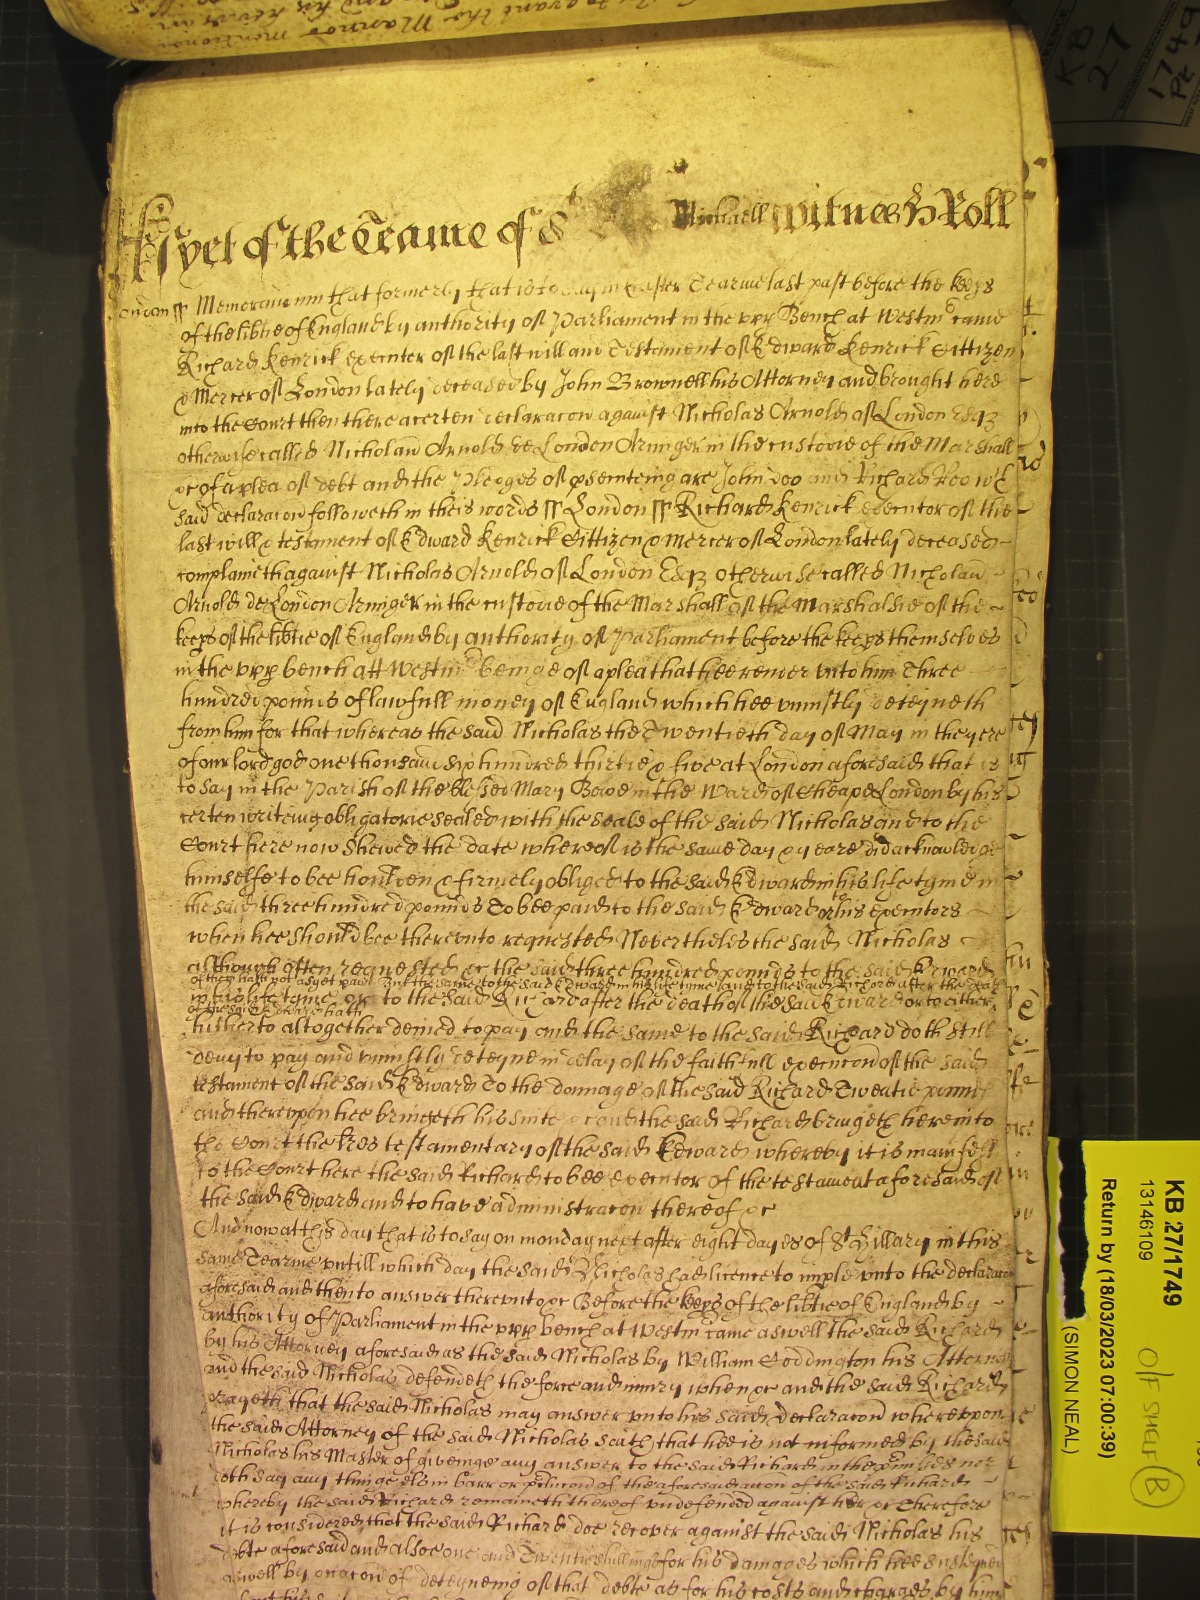 Yet of the Tearme of St Michaell Witnes H Roll
London ss Memorandum that formerly that is to say in Easter Tearme last past before the keeps
of the libtie of England by authority of Parliament in the upp Bench at Westm came
Richard Kenrick executor of the last will and Testament of Edward Kenrick Cittizen
& Mercer of London lately deceased by John Brownell his Attorney and brought here
into the Court then there a certen declaracon against Nicholas Arnold of London Esqz
otherwise called Nicholaus Arnold de London Armiger in the custodie of the Marshall
&c of a plea of debt and the Pledges of psecuteing are John Doo and Richard Roo wch
said declaracon followeth in theis words ss London ss Richard Kenrick executor of the
last will & testament of Edward Kenrick Cittizen & mercer of London lately deceased
complaineth against Nicholas Arnold of London Esqz otherwise called Nicholaus
Arnold de London Armiger in the custodie of the Marshall of the Marshalsie of the
keeps of the libtie of England by authority of Parliament before the keeps themselves
in the upp bench att Westm beinge of a plea that hee render unto him Three
hundred pounds of lawfull money of England which hee uniustly deteyneth
from him for that whereas the said Nicholas the Twentieth day of May in the yere
of our lord god one thousand six hundred thirtie & five at London aforesaid that is
to say in the Parish of the blessed Mary Bowe in the Ward of Cheape London by his
certen writeing obligatorie sealed with the seale of the said Nicholas and to the
Court here now shewed the date whereof is the same day & yeare did acknowledge
himselfe to bee houlden & firmely obliged to the said Edward in his life tyme in
the said three hundred pounds To bee paid to the said Edward or his executors
when hee should bee thereunto requested Neverthelesse the said Nicholas
although often requested &c the said three hundred pounds to the said Edward
in his life tyme or to the said Richard after the death of the said Edward or to either
of them hath not as yet paid But the same to the said Edward in his life tyme and to the said Richard after the death
of the said Edward hath
hitherto altogether denied to pay and the same to the said Richard doth still
deny to pay and uniustly deteyne in delay of the faithfull execucon of the said
testament of the said Edward To the damage of the said Richard Twentie pounds
and thereupon hee bringeth his suite &c and the said Richard bringeth here into
the Court the lres testamentary of the said Edward whereby it is manifest
to the Court here the said Richard to bee Executor of the testament aforesaid of
the said Edward and to have administracon thereof &c
And now at this day that is to say on monday next after eight dayes of St Hillary in this
same Tearme untill which day the said Nicholas had licence to imple unto the declaracon
aforesaid and then to answer thereunto &c Before the keeps of the libtie of England by
authority of Parliament in the upp bench at Westm came aswell the said Richard
by his Attorney aforesaid as the said Nicholas by William Coddington his Attorney
and the said Nicholas defendeth the force and iniury when &c and the said Richard
prayeth that the said Nicholas may answer unto his said declaracon whereupon
the said Attorney of the said Nicholas saith that hee is not informed by the said
Nicholas his Master of giveinge any answer to the said Richard in the pmisses nor
doth say any thinge els in barr or pclucon of the aforesaid accon of the said Richard
whereby the said Richard remaineth thereof undefended against him &c Therefore
it is considered that the said Richard doe recover against the said Nicholas his
debte aforesaid and alsoe one and Twentie shillings for his damages which hee susteyned
aswell by occacon of deteyneing of that debte as for his costs and charges by him
KB
27
1749
Pt
KB 27/1749
13146109
Return by (18/03/2023 07:00:39)
(SIMON NEAL)
O/F SHELF B